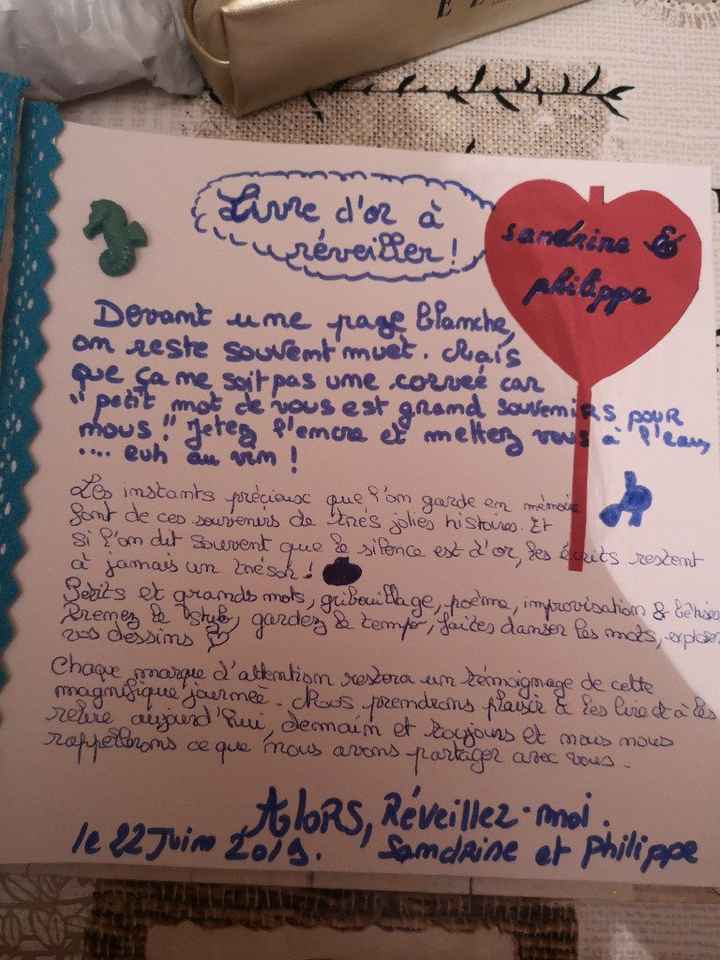 Livre d'or à
réveiller !
sandrine &
philippe
Devant une page blanche,
on reste souvent muet. Mais
que ça ne soit pas une corveé car
"petit mot de vous est grand souvenirs pour
nous". Jetez l'encre et mettez vous à l'eau,
.... euh au vin !
Les instants précieux que l'on garde en mémoire
font de ces souvenirs de très jolies histoires. Et
si l'on dit souvent que le silence est d'or, les écrits restent
à jamais un trésor !
Petits et grands mots, gribouillage, poème, improvisation & bêtises
Prenez le stylo, gardez le tempo, faites danser les mots, exploser
vos dessins
Chaque marque d'attention restera un témoignage de cette
magnifique journeé. Nous prendrons plaisir à les lire et à les
relire aujourd'hui, demain et toujours et nous nous
rappellerons ce que nous avons partager avec vous.
Alors, Réveillez-moi.
le 22 Juin 2019. Sandrine et philippe